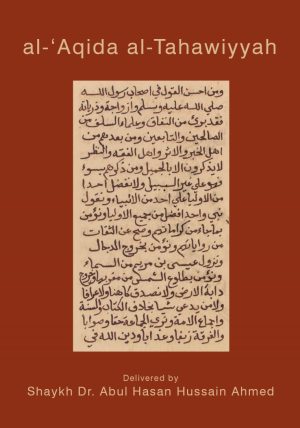 al-‘Aqida al-Tahawiyyah
ومن احسن القول في اصحاب رسول الله
صلى الله عليه وسلم وازواجه وذرياته
فقد برئ من النفاق وعلماء السلف من
الصالحين والتابعين ومن بعدهم من
اهل الخير والاثر واهل الفقه والنظر
لا يذكرون الا بالجميل ومن ذكرهم بسوء
فهو على غير السبيل ولا نفضل احدا
من الاوليا على احد من الانبياء ونقول
نبي واحد افضل من جميع الاوليا ونؤمن
بما جاء من كراماتهم وصح عن الثقات
من رواياتهم ونؤمن بخروج الدجال
ونزول عيسى بن مريم من السماء
ونؤمن بطلوع الشمس من مغربها وخروج
دابة الارض ولا نصدق كاهنا ولا عرافا
ولا من يدعي شيا بخلاف الكتاب والسنة
واجماع الامة ونرى الجماعة حقا وصوابا
والفرقة زيغا وعذابا ودين الله في
Delivered by
Shaykh Dr. Abul Hasan Hussain Ahmed